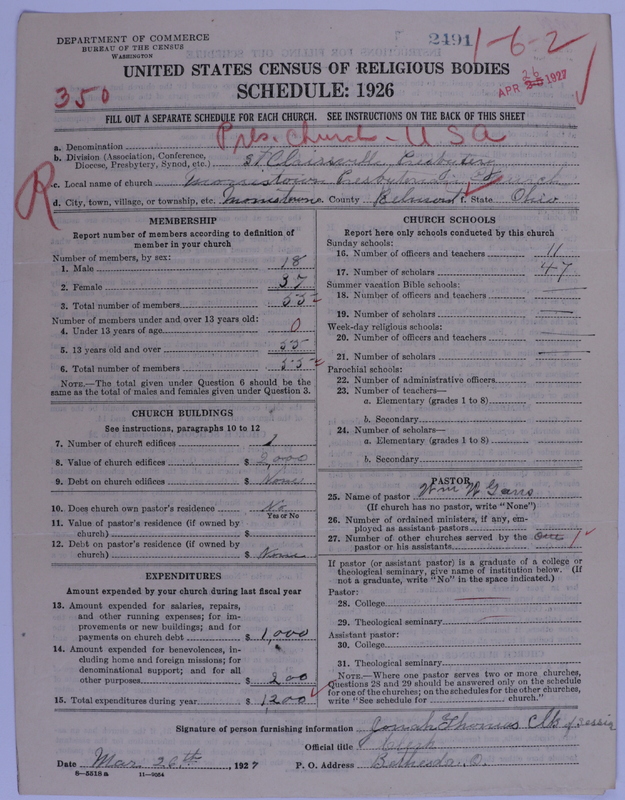 DEPARTMENT OF COMMERCE
BUREAU OF THE CENSUS
WASHINGTON
2491
1-6-2
UNITED STATES CENSUS OF RELIGIOUS BODIES
APR 26 1927
350
SCHEDULE: 1926
FILL OUT A SEPARATE SCHEDULE FOR EACH CHURCH. SEE INSTRUCTIONS ON THE BACK OF THIS SHEET
a. Denomination Pres. Church - USA
b. Division (Association, Conference, Diocese, Presbytery, Synod, etc.) St Clairsville Presbytery
R
c. Local name of church Morristown Presbyterian Church
d. City, town, village, or township, etc. Morristown County Belmont f. State Ohio
MEMBERSHIP
Report number of members according to definition of
member in your church
Number of members, by sex:
1. Male 18
2. Female 37
3. Total number of members 55
Number of members under and over 13 years old:
4. Under 13 years of age 0
5. 13 years old and over 55
6. Total number of members 55
NOTE.—The total given under Question 6 should be
same as the total of males and females given under Question 3.
CHURCH BUILDINGS
See instructions, paragraphs 10 to 12
7. Number of church edifices 1
8. Value of church edifices $ 2,000
9. Debt on church edifices $ None
10. Does church own pastor's residence No
Yes or No
11. Value of pastor's residence (if owned by
church) $
12. Debt on pastor's residence (if owned by
church) $ None
EXPENDITURES
Amount expended by your church during last fiscal year
13. Amount expended for salaries, repairs,
and other running expenses; for im-
provements or new buildings; and for
payments on church debt $ 1,000
14. Amount expended for benevolences, in-
cluding home and foreign missions; for
denominational support; and for all
other purposes $ 200
15. Total expenditures during year $ 1200
CHURCH SCHOOLS
Report here only schools conducted by this church
Sunday schools:
16. Number of officers and teachers 11
17. Number of scholars 47
Summer vacation Bible schools:
18. Number of officers and teachers
19. Number of scholars
Week-day religious schools:
20. Number of officers and teachers
21. Number of scholars
Parochial schools:
22. Number of administrative officers
23. Number of teachers—
a. Elementary (grades 1 to 8)
b. Secondary
24. Number of scholars—
a. Elementary (grades 1 to 8)
b. Secondary
PASTOR
25. Name of pastor Wm W Gans
(If church has no pastor, write "None")
26. Number of ordained ministers, if any, em-
ployed as assistant pastors
27. Number of other churches served by the
pastor or his assistants One 1
If pastor (or assistant pastor) is a graduate of a college or
theological seminary, give name of institution below. (If
not a graduate, write "No" in the space indicated.)
Pastor:
28. College
29. Theological seminary
Assistant pastor:
30. College
31. Theological seminary
NOTE.—Where one pastor serves two or more churches,
Questions 28 and 29 should be answered only on the schedule
for one of the churches; on the schedules for the other churches,
write "See schedule for church."
Signature of person furnishing information Jonah Thomas Clk of Session
Official title Clerk
Date Mar. 26th, 1927 P. O. Address Bethesda. O.
8—5518a 11—9054